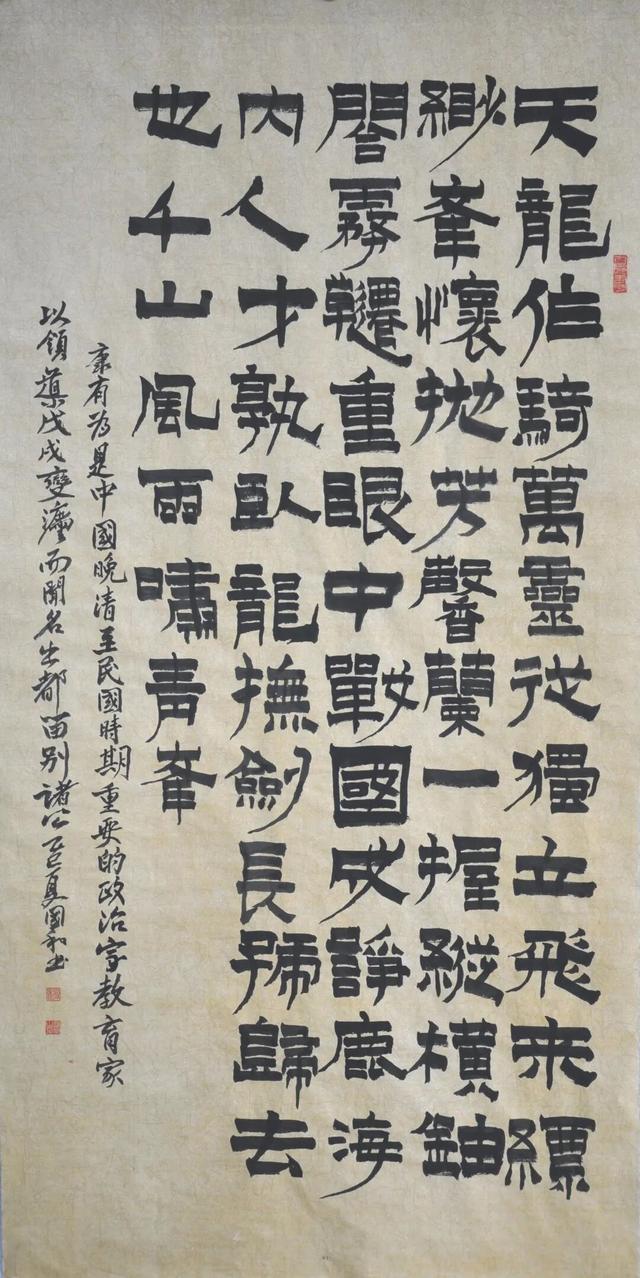 天龍伯騎萬靈從獨立飛來縹
緲峯懷拋芳馨蘭一握縱橫鈾
閤霧韆重眼中戰國成諍鹿海
內人才孰臥龍撫劍長號歸去
也千山風雨嘯青峯
康有为是中國晚清至民國時期重要的政治家教育家
以領導戊戌變灋而聞名出都留别諸公乙巳夏國和书